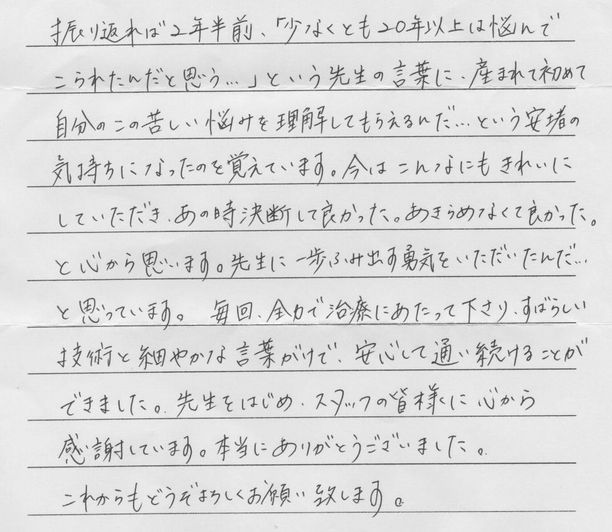 振り返れば2年半前、「少なくとも20年以上は悩んで
こられたんだと思う…」という先生の言葉に、産まれて初めて
自分のこの苦しい悩みを理解してもらえるんだ…という安堵の
気持ちになったのを覚えています。今はこんなにもきれいに
していただき、あの時決断して良かった。あきらめなくて良かった。
と心から思います。先生に一歩ふみ出す勇気をいただいたんだ…
と思っています。 毎回、全力で治療にあたって下さり、すばらしい
技術と細やかな言葉がけで、安心して通い続けることが
できました。先生をはじめ、スタッフの皆様に心から
感謝しています。本当にありがとうございました。
これからもどうぞよろしくお願い致します。